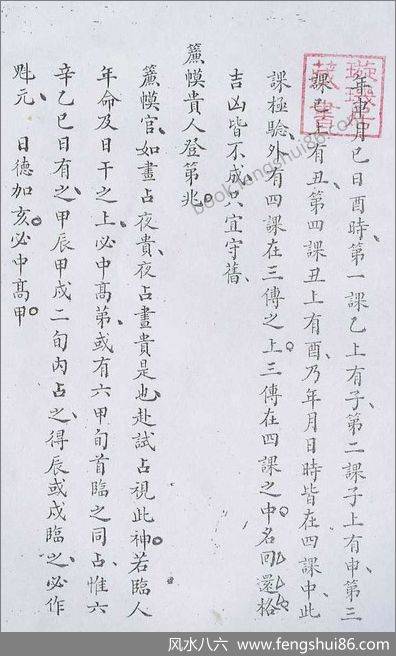 年申月巳日酉時、第一課乙上有子、第二課子上有申、第三
課巳上有丑、第四課丑上有酉、乃年月日時皆在四課中、此
課極驗、外有四課在三傳之上。三傳在四課之中。名回還格
吉凶皆不成、只宜守舊、
簾幙貴人登第兆。
簾幙官、如晝占夜貴、夜占晝貴是也、赴試占視此神。若臨人
年命及日干之上、必中高第、或有六甲旬首臨之同占、惟六
辛乙巳日有之、甲辰甲戌二旬內占之、得辰或戌臨之、必作
魁元。 日德加亥、必中高甲。
藏書
book.fengshui86.com
风水八六 - www.fengshui86.com